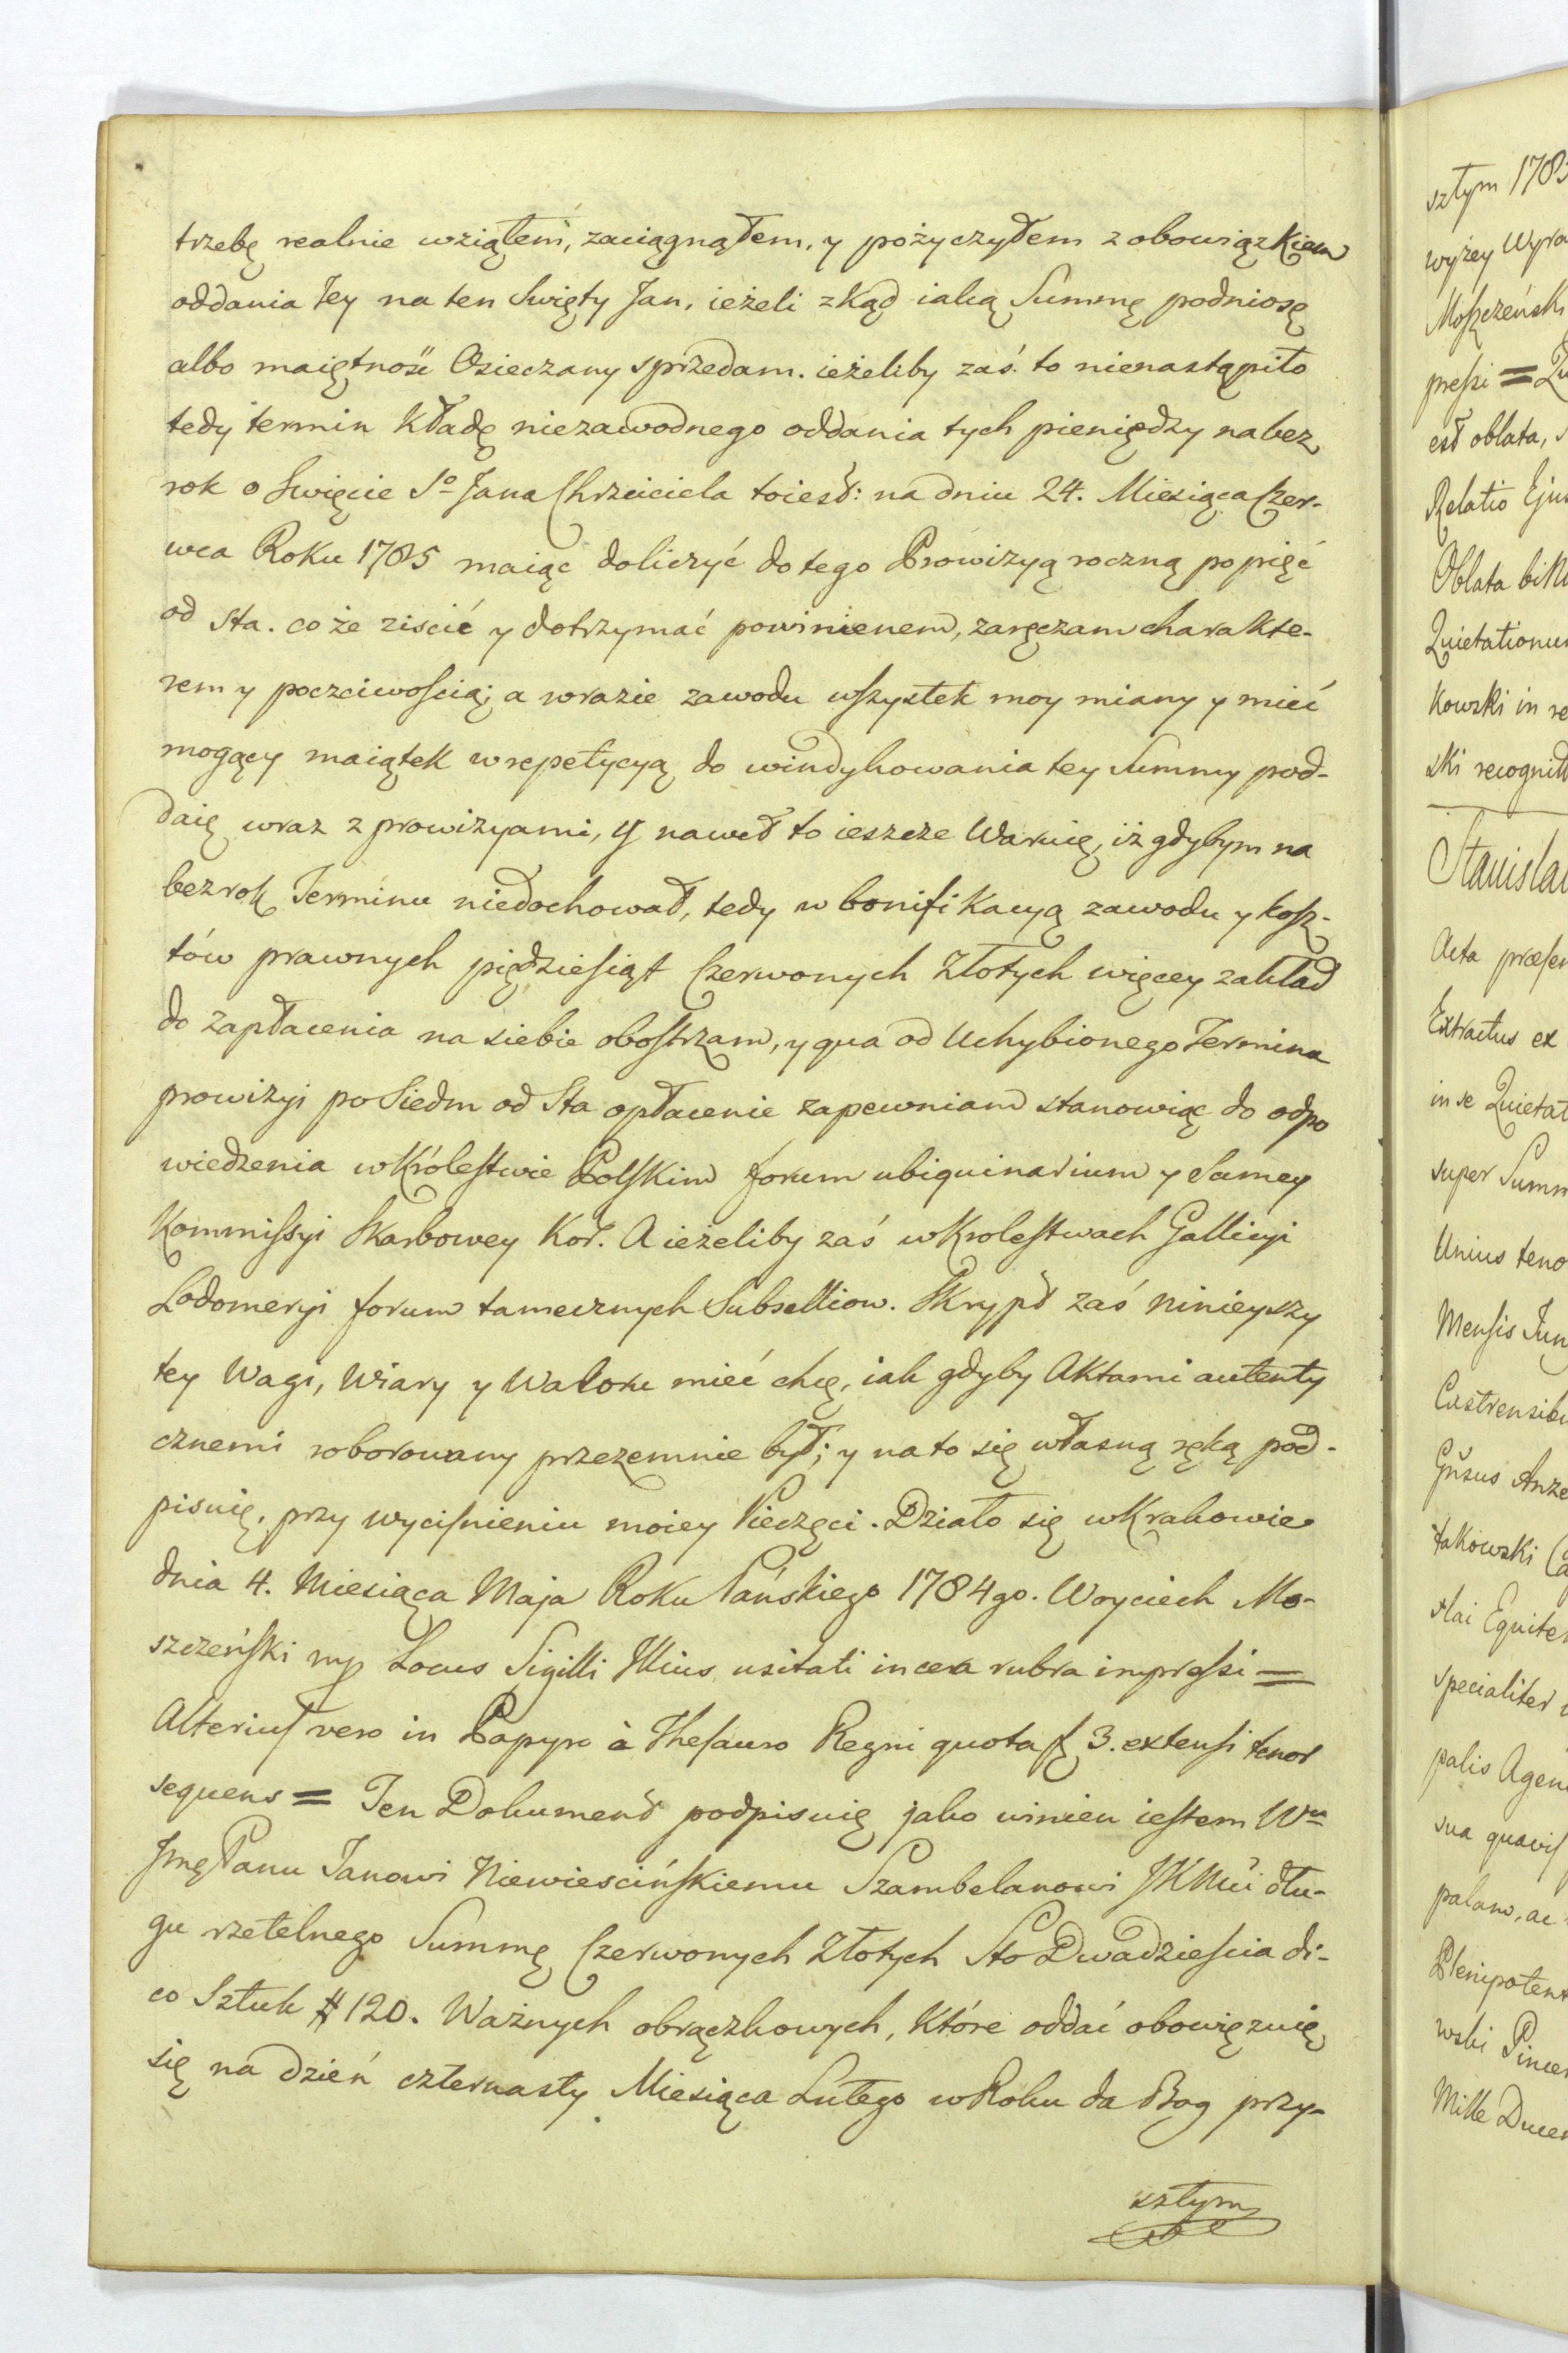 trzebę realnie wziąłem, zaciągnąłem, y pożyczyłem z obowiązkiem
oddania Jey na ten Swięty Jan, ieżeli zkąd iaką Summę podniosę
albo maiętność Osieczany sprzedam. ieżeliby zaś to nienastąpiło
tedy termin kładę niezawodnego oddania tych pieniędzy nabez
rok o Swięcie So Jana Chrzciciela toiest: na dniu 24. Miesiąca Czer-
wca Roku 1785 maiąc doliczyć do tego Prowizyą roczną po pięć
od Sta. co że ziscić y dotrzymać powinienem, zaręczam charakte-
rem y poczciwością; a wrazie zawodu wszystek moy miany y mieć
mogący maiątek w repetycyą do windykowania tey Summy pod-
daię wraz z prowizyami, y nawet to ieszcze Waruię, iż gdybym na
bezrok Terminu niedochował, tedy w bonifikacyą zawodu y kosz-
tów prawnych pięćdziesiąt Czerwonych Złotych więcey zakład
do zapłacenia na siebie obostrzam, y qua od Uchybionego Termina
prowizyi po Siedm od Sta opłacenie zapewniam stanowiąc do odpo
wiedzenia w Królestwie Polskim forum ubiquinarium y Samey
Kommissyi Skarbowey Kor. A ieżeliby zaś w Krolestwach Gallicyi
Lodomeryi forum tamecznych Subselliow. Skrypt zaś ninieyszy
tey Wagi, Wiary y Waloru mieć chcę, iak gdyby Aktami autenty
cznemi roborowany przezemnie był; y na to się własną ręką pod-
pisuię, przy wyciśnieniu moiey Pieczęci. Działo się w Krakowie
dnia 4. Miesiąca Maja Roku Pańskiego 1784go. Woyciech Mo-
szczeński mp Locus Sigilli Illius usitati in cera rubra impressi =
Alterius vero in Papyro à Thesauro Regni quota 3. extensi tenor
sequens = Ten Dokument podpisuię jako winien iestem Wu
Jmę Panu Janowi Niewiescińskiemu Szambelanowi JKMci dłu-
gu rzetelnego Summę Czerwonych Złotych Sto Dwadzieścia di-
co Sztuk # 120. Ważnych obrączkowych, które oddać obowięzuię
się na dzień czternasty Miesiąca Lutego w Roku da Bog przy-
sztym
sztym 1785
wyżey Wyra
Moszczeński
pressi =
est oblata,
Relatio Ejus
Oblata
Quietationum
kowski in re
ski recognit
Stanisla
Acta præsen
Extractus ex
in se Quietat
super Summ
Unius teno
Mensis Jun
Castrensibu
takowski
slai Equite
specialiter
palis Agen
sua quavis
palam, ac
Plenipotent
wski Pincer
Mille Ducen